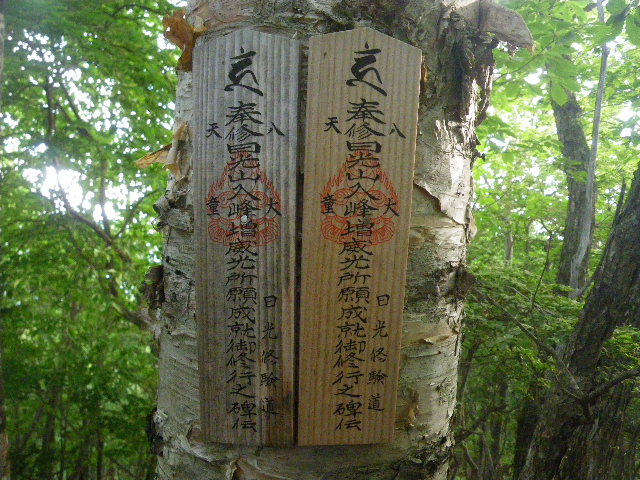 八大
奉修日光山入峰増威光所願成就御修行之碑伝
天童
日光修験道
八大
奉修日光山入峰増威光所願成就御修行之碑伝
天童
日光修験道